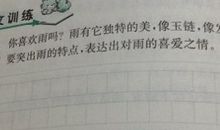 训练
你喜欢雨吗？雨有它独特的美，像玉链，像
要突出雨的特点，表达出对雨的喜爱之情。